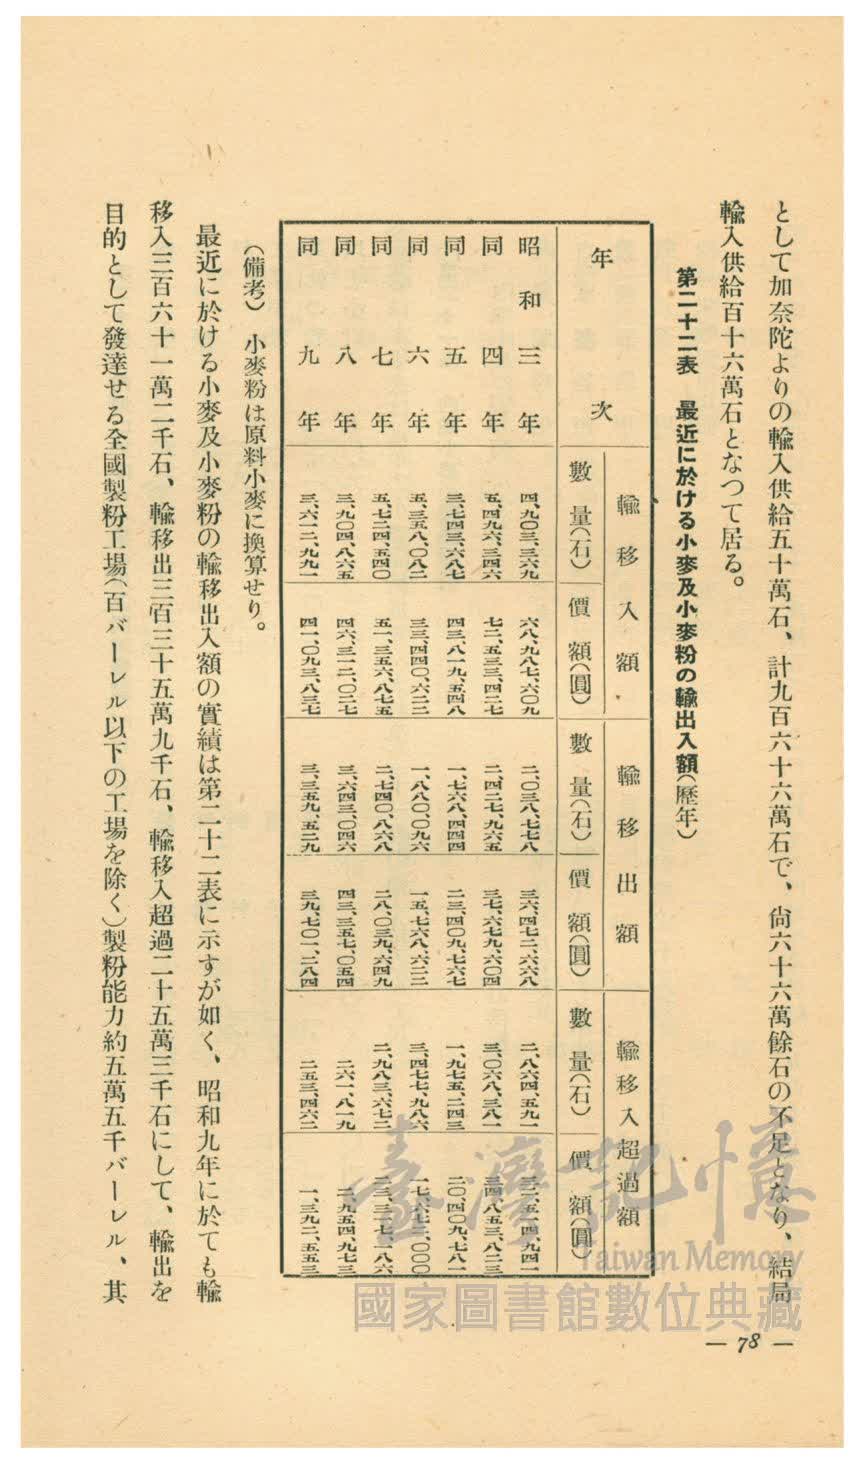 として加奈陀よりの輸入供給五十萬石、計九百六十六萬石で、尙六十六萬餘石の不足となり、結局
輸入供給百十六萬石となつて居る。
第二十二表　最近に於ける小麥及小麥粉の輸出入額(歷年)
年次　輸移入額　輸移出額　輸移入超過額
數量(石)　價額(圓)　數量(石)　價額(圓)　數量(石)　價額(圓)
昭和三年　四、九〇三、三六九　六八、九八七、六〇九　二、〇三八、七七八　三六、四七二、六六八　二、八六四、五九一　三二、五一四、九四一
同四年　五、四九六、三四六　七二、五三三、四二七　二、四二七、九六五　三七、六七九、六〇四　三、〇六八、三八一　三四、八五三、八二三
同五年　三、七四三、六八七　四三、八一九、五四八　一、七六八、四四四　二三、四〇九、七六七　一、九七五、二四三　二〇、四〇九、七八一
同六年　五、三五八、〇八二　三三、四四〇、六二二　一、八八〇、〇九六　一五、七六八、六二二　三、四七七、九八六　一七、六七二、〇〇〇
同七年　五、七二四、五四〇　五一、三五六、八七五　二、七四〇、八六八　二八、〇三九、六四九　二、九八三、六七二　二三、三一七、一八六
同八年　三、九〇四、八六五　四六、三一二、〇二七　三、六四三、〇四六　四三、三五七、〇五四　二六一、八一九　二、九五四、九七三
同九年　三、六一二、九九一　四一、〇九三、八三七　三、三五九、五二九　三九、七〇一、二八四　二五三、四六二　一、三九二、五五三
(備考)　小麥粉は原料小麥に換算せり。
最近に於ける小麥及小麥粉の輸移出入額の實績は第二十二表に示すが如く、昭和九年に於ても輸
移入三百六十一萬二千石、輸移出三百三十五萬九千石、輸移入超過二十五萬三千石にして、輸出を
目的として發達せる全國製粉工場(百バーレル以下の工場を除く)製粉能力約五萬五千バーレル、其
— 78 —
臺灣記憶
Taiwan Memory
國家圖書館數位典藏